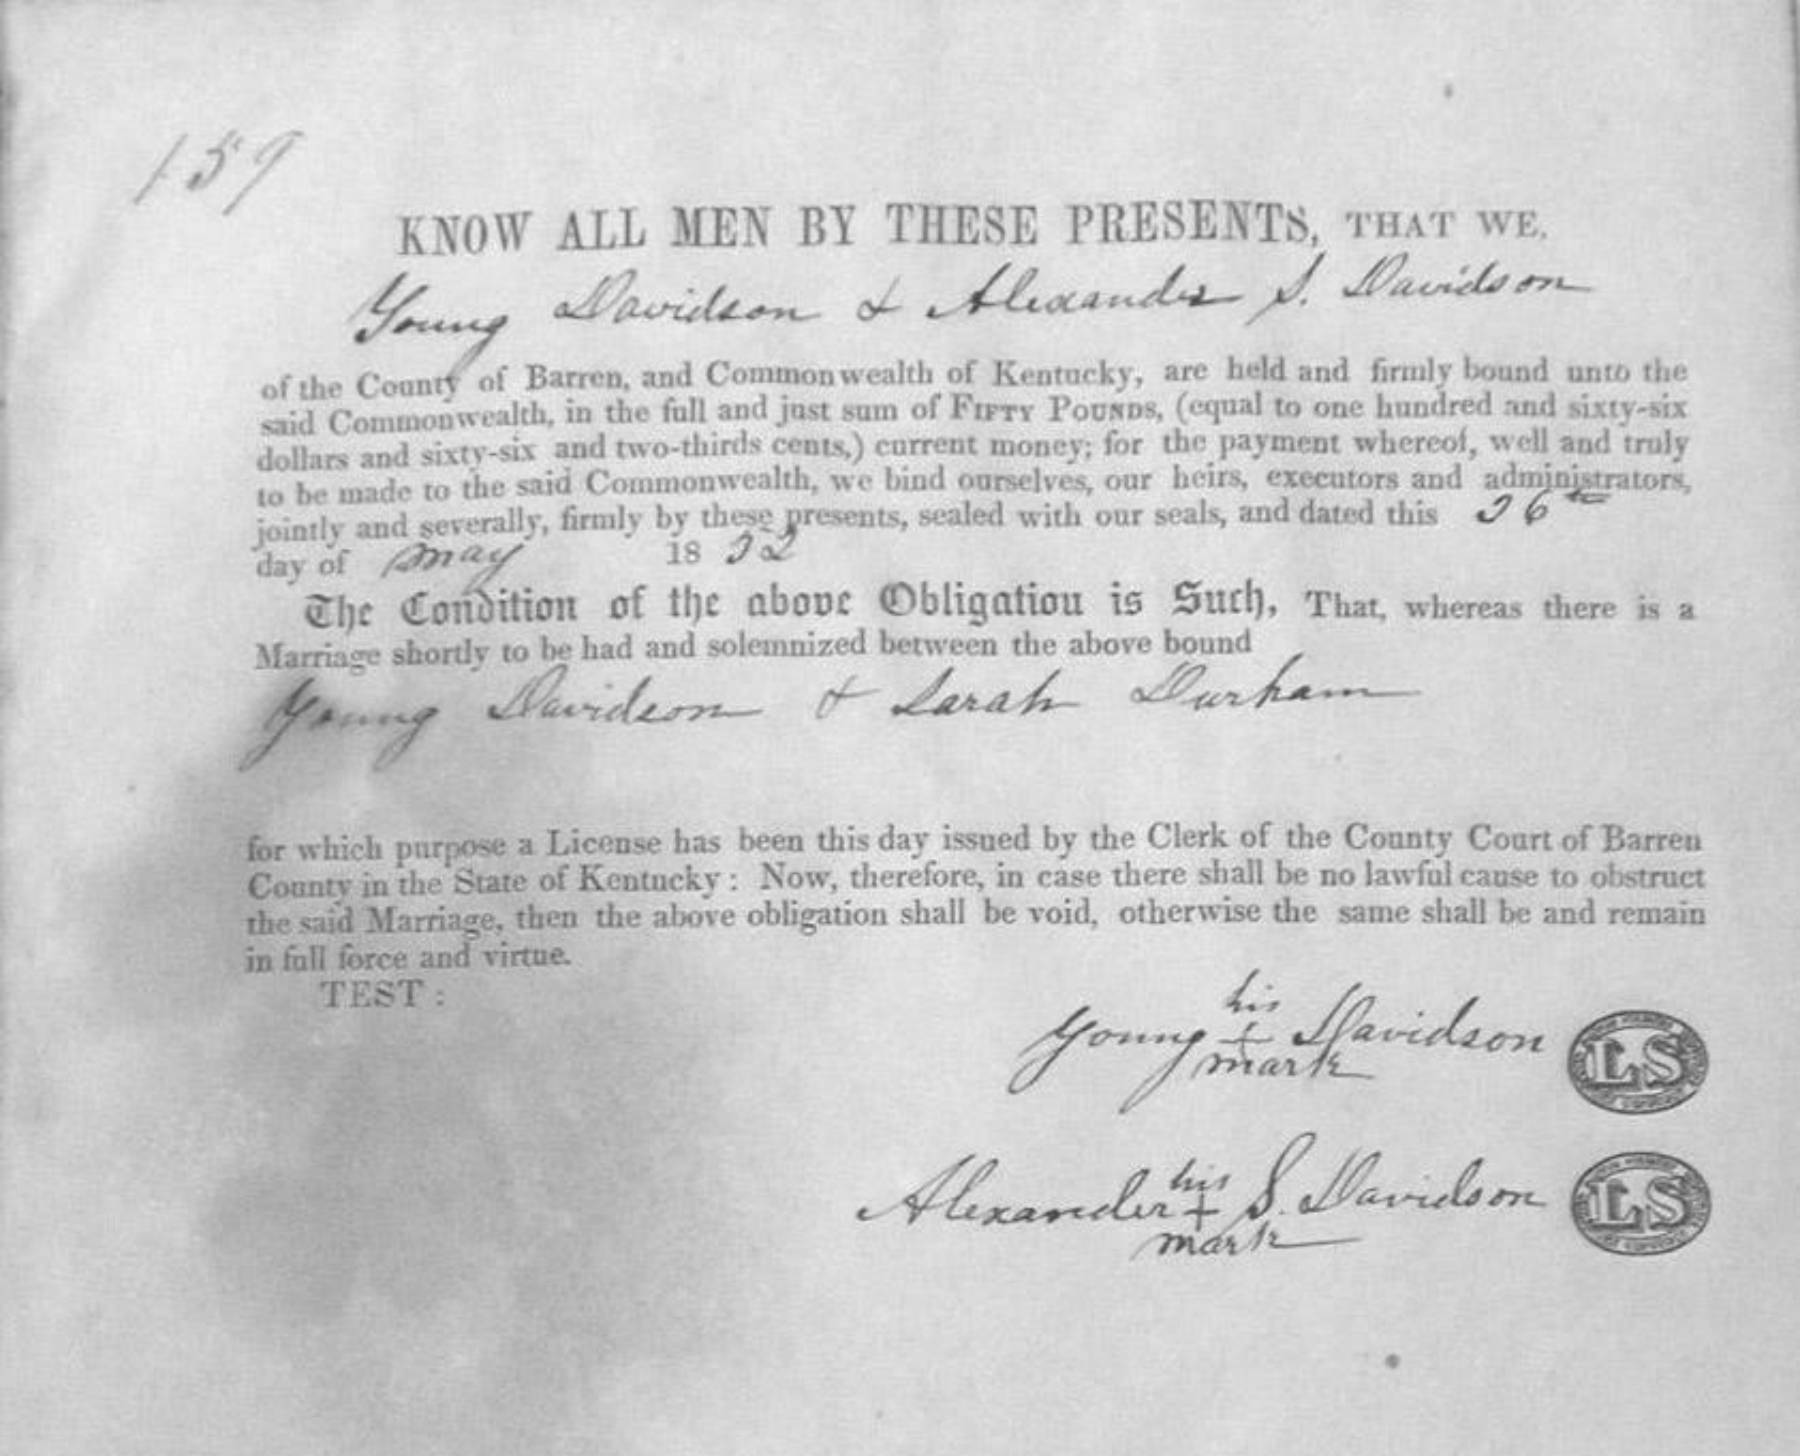 159
KNOW ALL MEN BY THESE PRESENTS, THAT WE,
Young Davidson & Alexander S. Davidson
of the County of Barren, and Commonwealth of Kentucky, are held and firmly bound unto the
said Commonwealth, in the full and just sum of FIFTY POUNDS, (equal to one hundred and sixty-six
dollars and sixty-six and two-thirds cents,) current money; for the payment whereof, well and truly
to be made to the said Commonwealth, we bind ourselves, our heirs, executors and administrators,
jointly and severally, firmly by these presents, sealed with our seals, and dated this
day of May 18
The Condition of the above Obligation is Such, That, whereas there is a
Marriage shortly to be had and solemnized between the above bound
Young Davidson & Sarah Durham
for which purpose a License has been this day issued by the Clerk of the County Court of Barren
County in the State of Kentucky: Now, therefore, in case there shall be no lawful cause to obstruct
the said Marriage, then the above obligation shall be void, otherwise the same shall be and remain
in full force and virtue.
TEST:
his
Young + Davidson LS
mark
his
Alexander + S. Davidson LS
mark